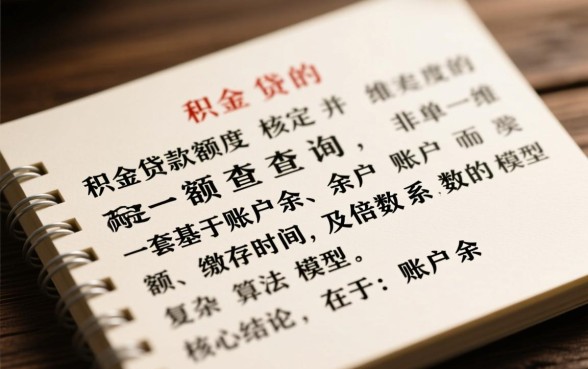 积金贷的
积金贷款额度 核定 并 维 度的
一额查查询，非单一维
一套基于账户余、余户 账户 而
额、缴存时间，及倍数系数的模型
复杂 算法 模型。
核心结论，在于：账户余